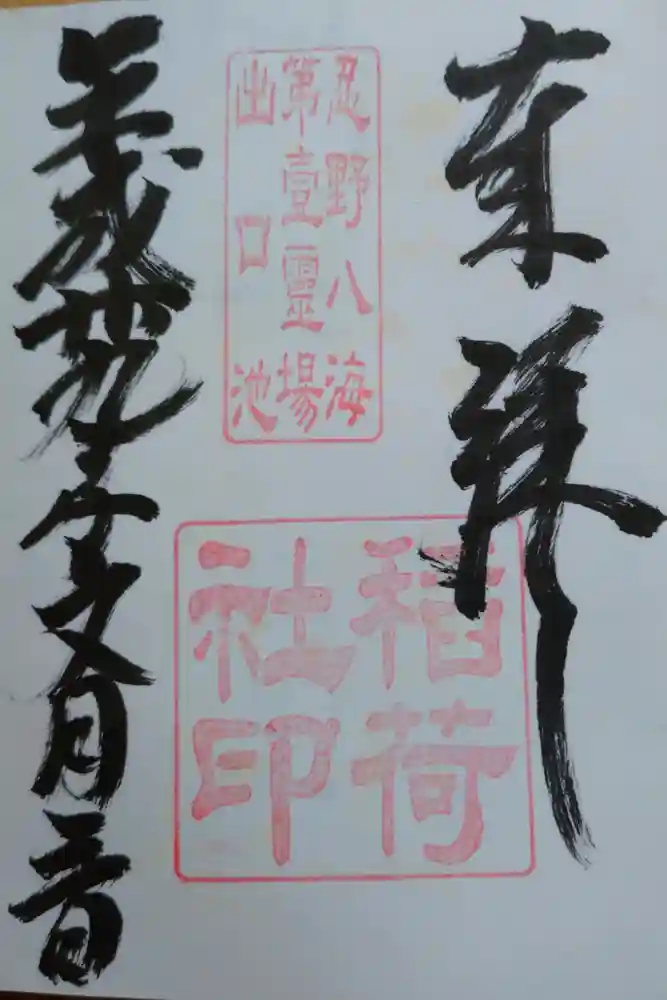 奉拝
忍野八海
第壹靈場
出口池
稲荷
社印
平成廿九年文月